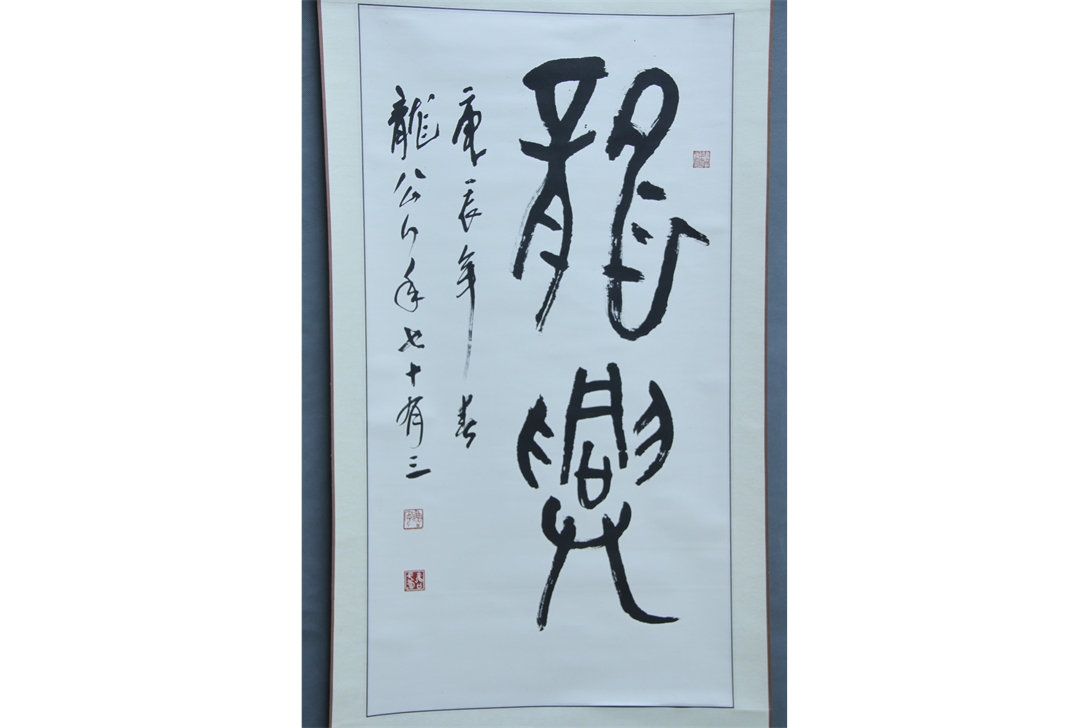 龍興
庚辰年春
龍公行年七十有三